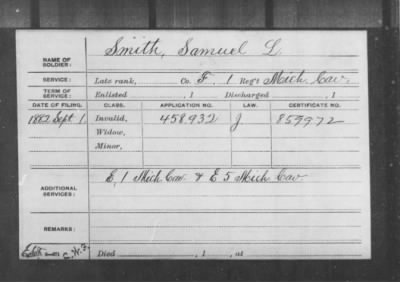 Smith, Samuel L.
NAME OF SOLDIER:
SERVICE: Late rank, Co. F. 1 Reg't Mich. Cav.
TERM OF SERVICE: Enlisted , 1 Discharged , 1
DATE OF FILING. CLASS. APPLICATION NO. LAW. CERTIFICATE NO.
1882 Sept 1 Invalid, 458,932 J 859972
Widow,
Minor,
ADDITIONAL SERVICES: E, 1 Mich Cav. & E 5 Mich Cav
REMARKS:
Died , 1 , at